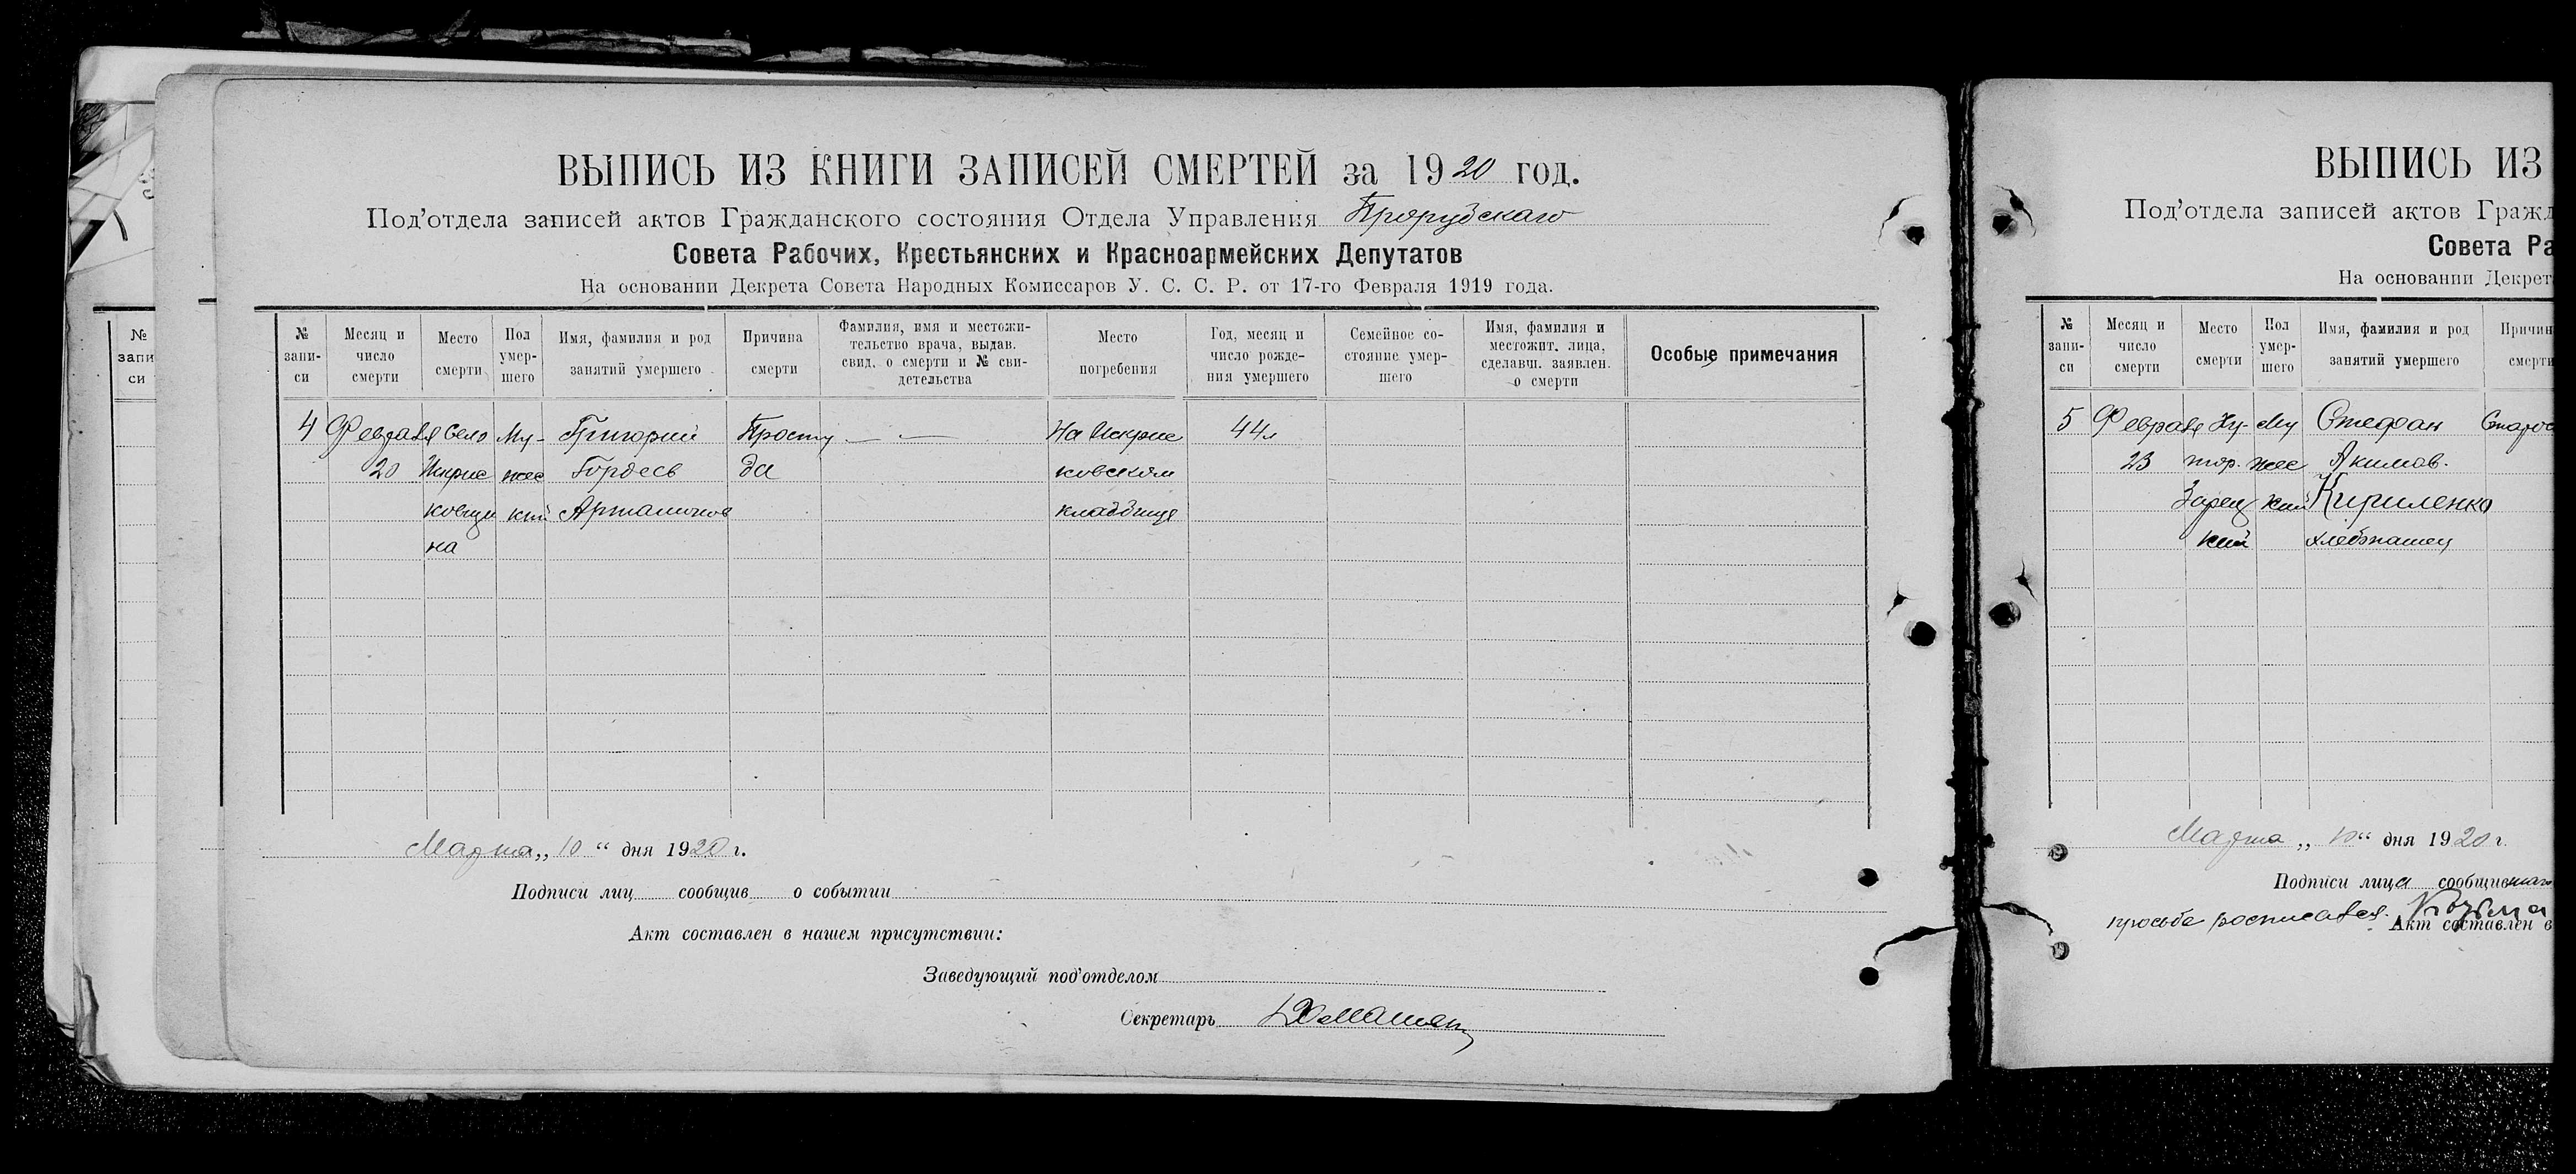 ВЫПИСЬ ИЗ КНИГИ ЗАПИСЕЙ СМЕРТЕЙ за 1920 год.
Под'отдела записей актов Гражданского состояния Отдела Управления Прорубскаго
Совета Рабочих, Крестьянских и Красноармейских Депутатов
На основании Декрета Совета Народных Комиссаров У. С. С. Р. от 17-го Февраля 1919 года.
№ запи- си
Месяц и число смерти
Место смерти
Пол умер- шего
Имя, фамилия и род занятий умершего
Причина смерти
Фамилия, имя и местожи- тельство врача, выдав. свид. о смерти и № сви- детельства
Место погребения
Год, месяц и число рожде- ния умершего
Семейное со- стояние умер- шего
Имя, фамилия и местожит. лица, сделавш. заявлен. о смерти
Особые примечания
4 Февраля Село Му- Григорий Просту — — На Искрис 44 л
20 Искрис жес Гордеев да ковском
ковщи кий Артамонов кладбище
на
Марта „ 10 “ дня 1920 г.
Подписи лиц сообщив о событии
Акт составлен в нашем присутствии:
Заведующий под'отделом
Секретарь
№ запи си
ВЫПИСЬ ИЗ
Под'отдела записей актов Гражд
Совета Ра
На основании Декрет
№ запи- си
Месяц и число смерти
Место смерти
Пол умер- шего
Имя, фамилия и род занятий умершего
Причин смерти
5 Февраля Ху- Му Стефан Старос
23 тор. жес Акимов.
Зарец кий Кириленко
кий хлебопашец
Марта „ 10 “ дня 1920 г.
Подписи лица сообщившаго
просьбе росписался. Козьма
Акт составлен в